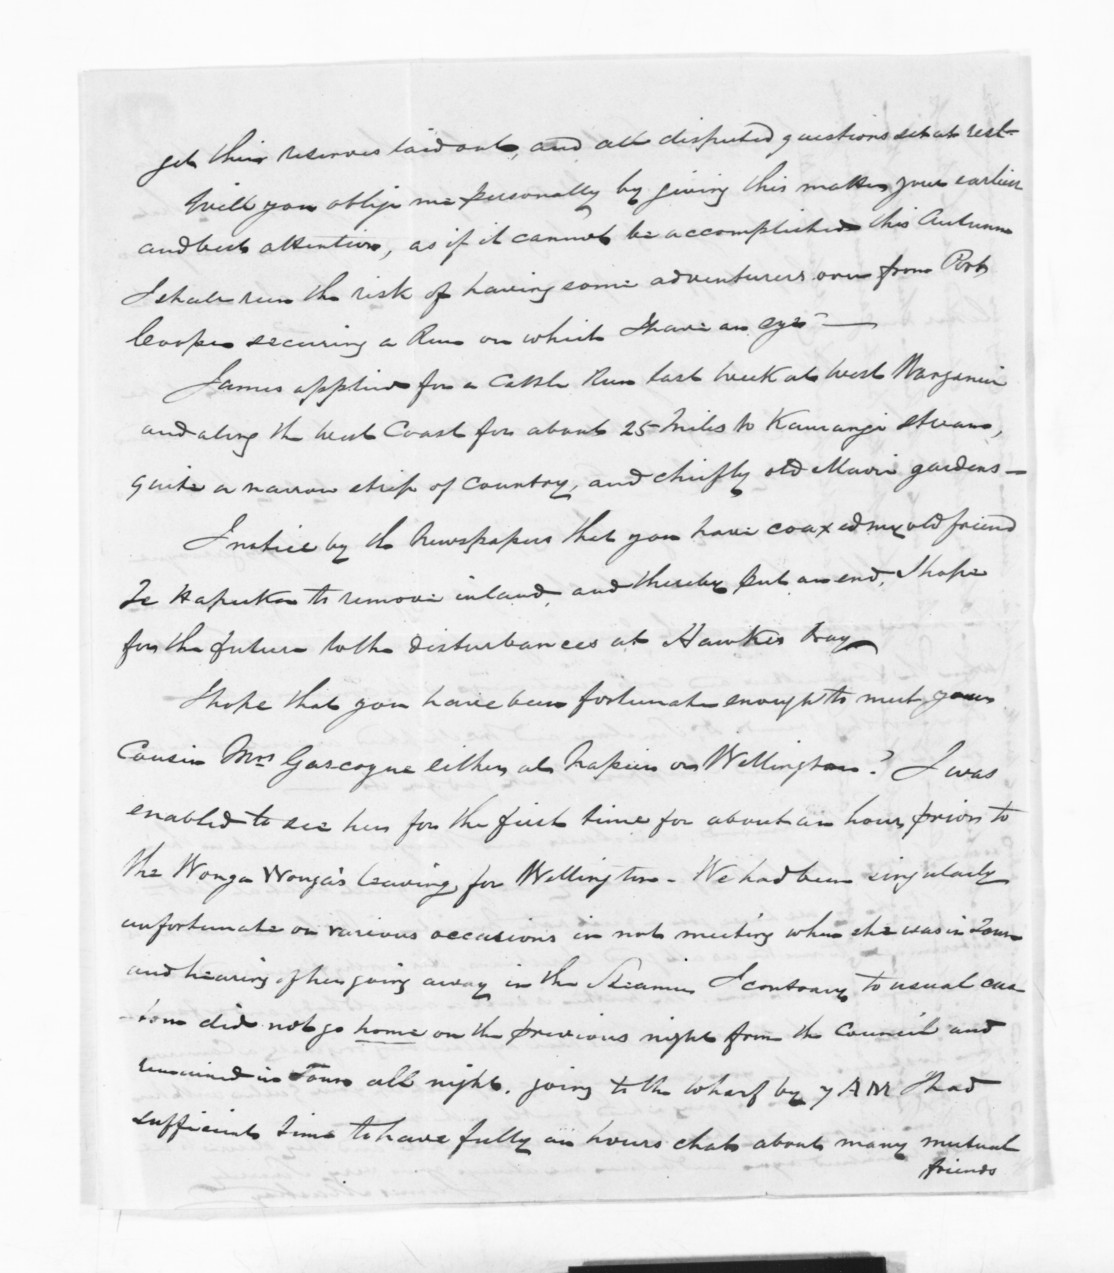 get their reserves laid out, and all disputed questions set at rest
Will you oblige me personally by giving this matter your earliest
and best attention, as if it cannot be accomplished this Autumn
I shall run the risk of having some adventurers over from Port
Cooper securing a Run on which I have an eye" —
James applied for a Cattle Run last week at West Wanganui
and along the West Coast for about 25 Miles to Kaurangi Stream,
quite a narrow strip of country, and chiefly old Maori gardens —
I notice by the Newspapers that you have coaxed my old friend
Te Hapuku to remove inland, and thereby put an end, I hope
for the future to the disturbances at Hawkes Bay
I hope that you have been fortunate enough to meet your
Cousin Mrs Gascoyne either at Napier or Wellington? I was
enabled to see her for the first time for about an hour, prior to
the Wonga Wonga's leaving for Wellington - We had been singularly
unfortunate on various occasions in not meeting when she was in Town
and hearing of her going away in the Steamer I contrary to usual cus
-tom did not go home on the previous night from the Council and
remained in Town all night. going to the wharf by 7 AM I had
sufficient time to have fully an hours chat about many mutual
friends